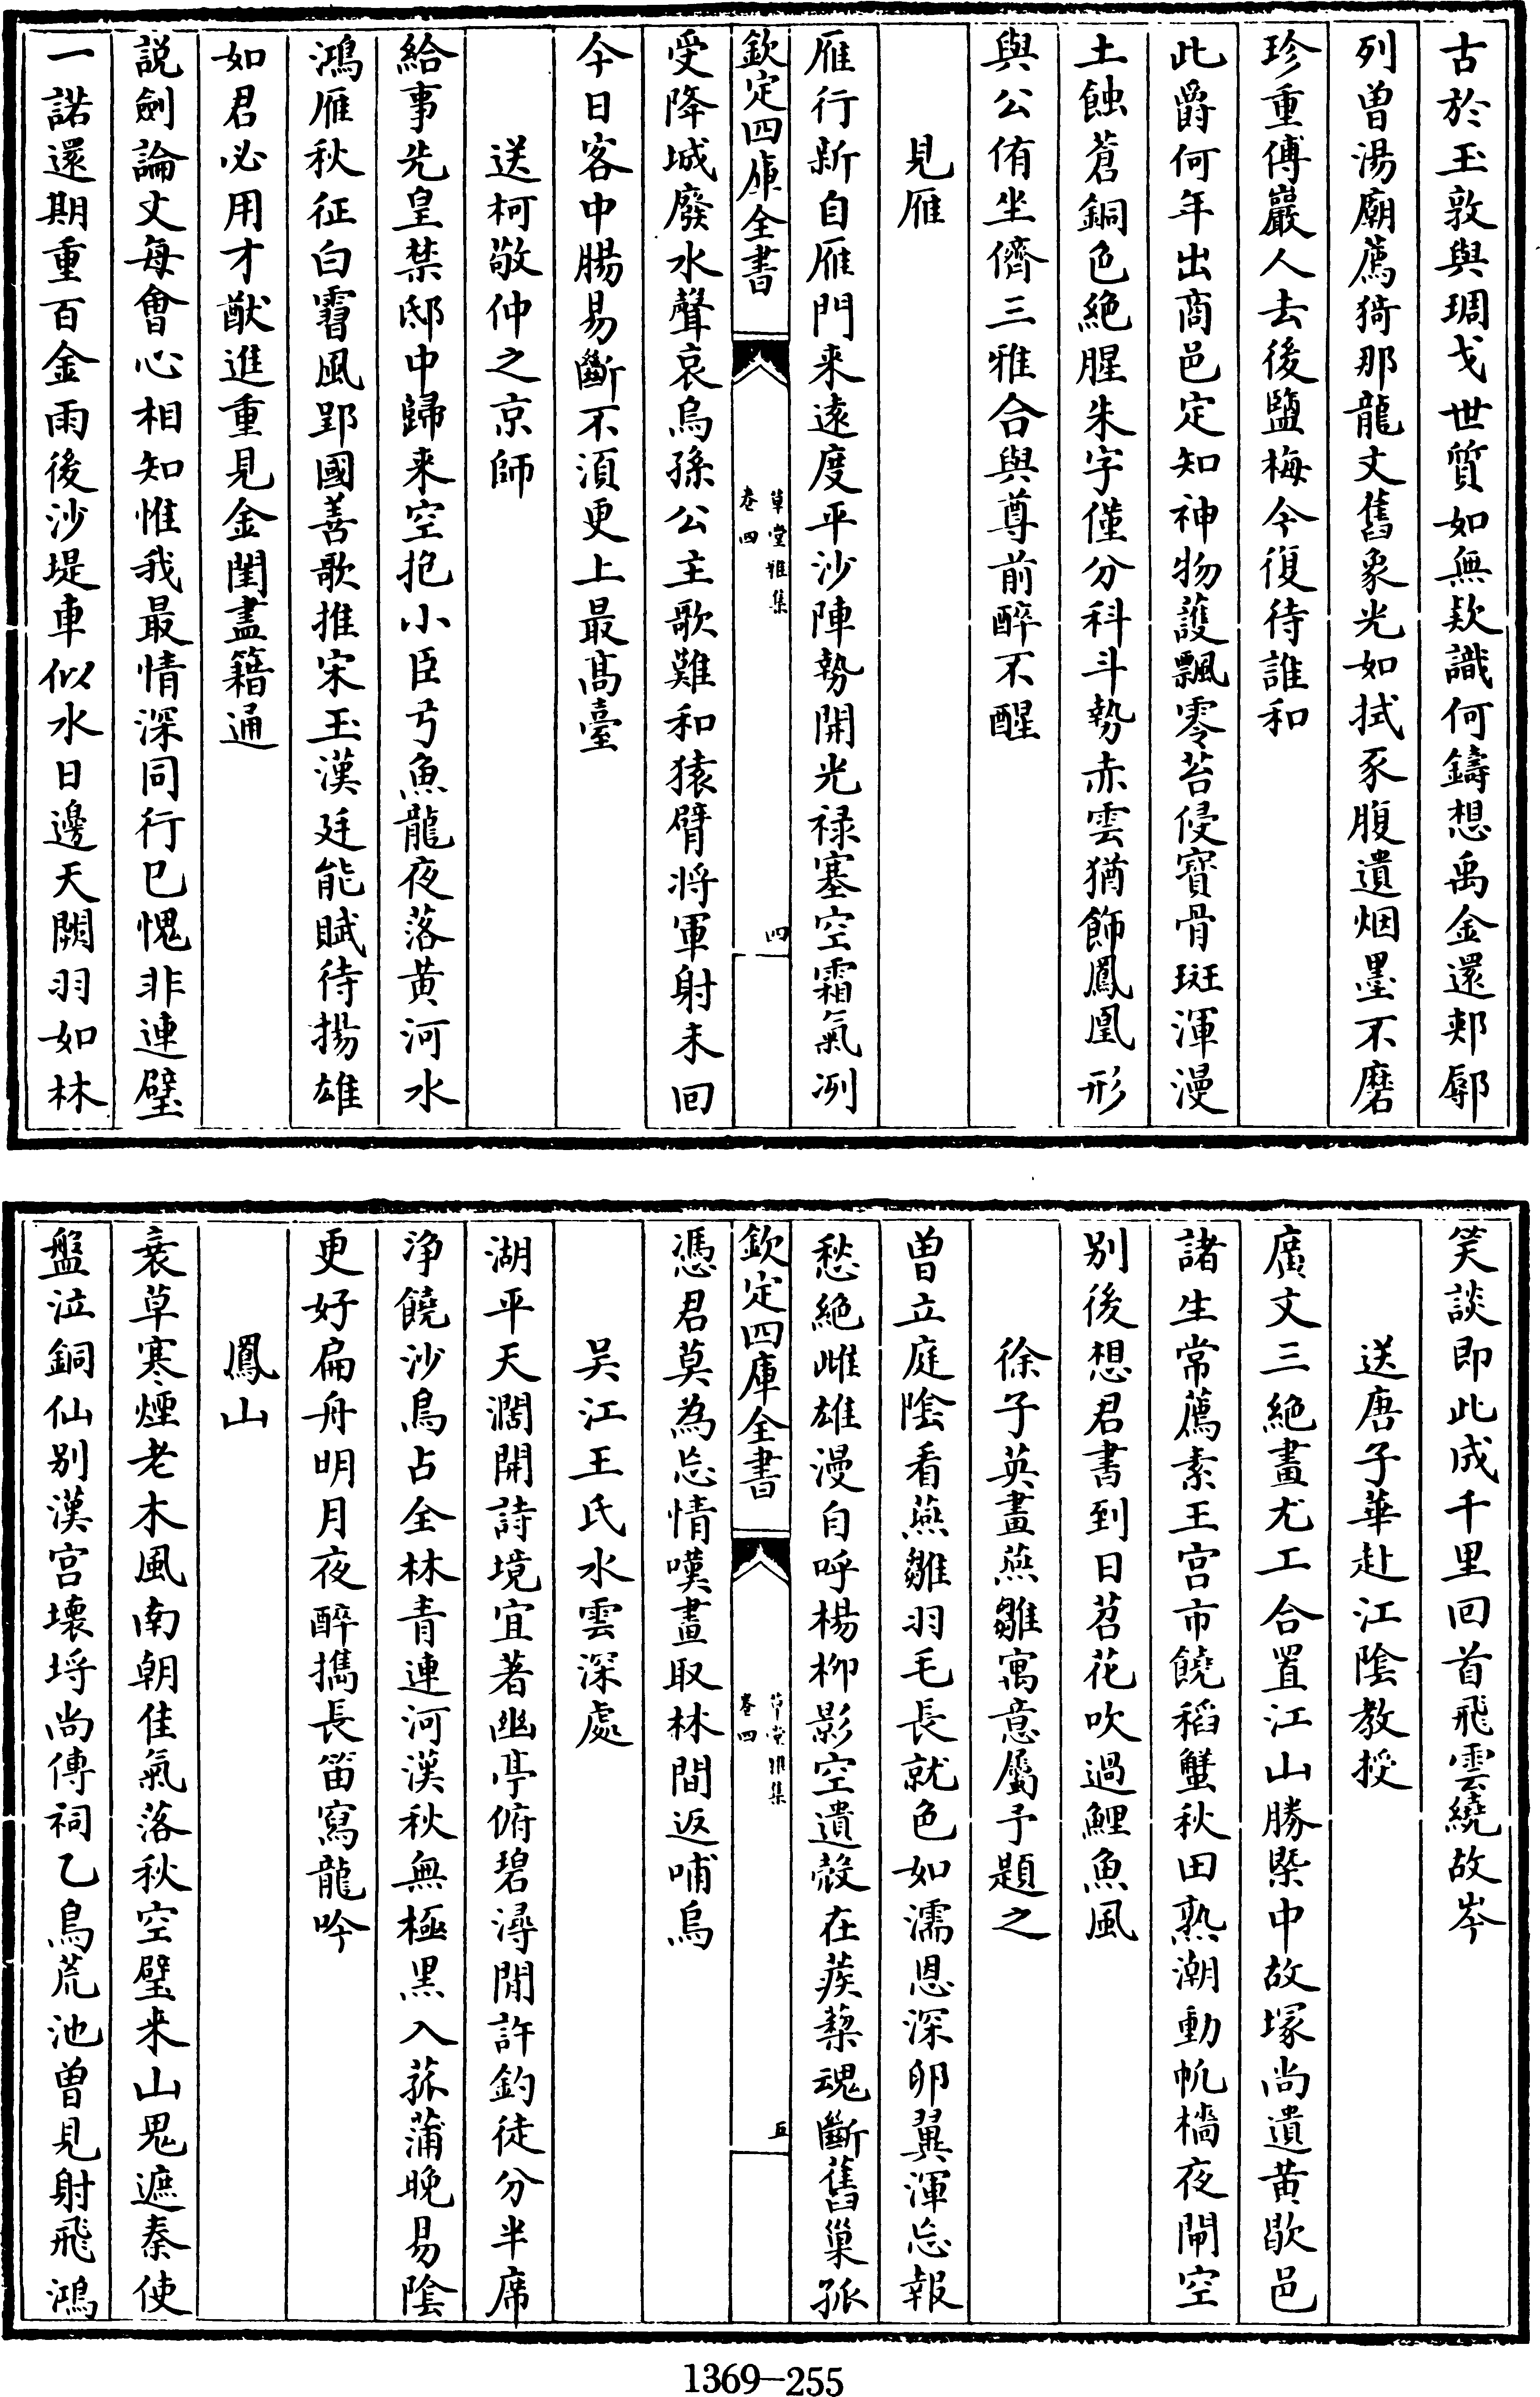 古於玉敦與琱戈世質如無欵識何鑄想禹金還郟鄏
列曽湯廟薦猗那龍文舊象光如拭豕腹遺烟墨不磨
珍重傅巖人去後鹽梅今復待誰和
此爵何年出商邑定知神物䕶飄零苔侵寳骨斑渾漫
土蝕蒼銅色絶腥朱字僅分科斗勢赤雲猶飾鳳凰形
與公侑坐儕三雅合與尊前醉不醒
見雁
雁行新自雁門来逺度平沙陣勢開光禄塞空霜氣冽
欽定四庫全書
草堂雅集
卷四
四
受降城廢水聲哀烏孫公主歌難和猿臂将軍射未回
今日客中腸易斷不湏更上最髙臺
送柯敬仲之京師
給事先皇禁邸中歸来空抱小臣弓魚龍夜落黄河水
鴻雁秋征白霫風郢國善歌推宋玉漢廷能賦待揚雄
如君必用才猷進重見金閨盡籍通
説劍論文每㑹心相知惟我最情深同行已愧非連璧
一諾還期重百金雨後沙堤車似水日邊天闕羽如林
笑談即此成千里回首飛雲繞故岑
送唐子華赴江陰教授
廣文三絶畫尤工合置江山勝槩中故塚尚遺黄歇邑
諸生常薦素王宫市饒稻蟹秋田熟潮動帆檣夜閘空
别後想君書到日苕花吹過鯉魚風
徐子英畫燕雛寓意屬予題之
曽立庭陰看燕雛羽毛長就色如濡恩深卵翼渾忘報
愁絶雌雄漫自呼楊栁影空遺殻在蒺藜魂斷舊巢孤
欽定四庫全書
草堂雅集
卷四
五
憑君莫為忘情嘆畫取林間返哺烏
吴江王氏水雲深處
湖平天濶開詩境宜著幽亭俯碧潯閒許釣徒分半席
浄饒沙鳥占全林青連河漢秋無極黒入菰蒲晚易陰
更好扁舟明月夜醉擕長笛寫龍吟
鳳山
衰草寒煙老木風南朝佳氣落秋空璧来山鬼遮秦使
盤泣銅仙别漢宫壊埓尚傳祠乙鳥荒池曽見射飛鴻
1369—255